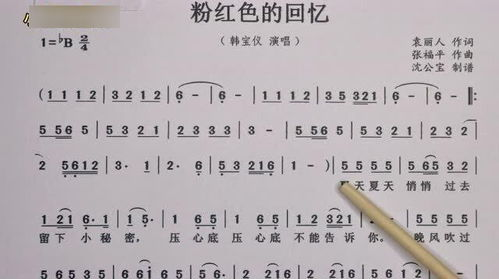 粉红色的回忆
1=♭B 2/4
（韩宝仪 演唱）
袁丽人 作词
张福平 作曲
沈公宝 制谱
(1 1 1 2 | 3 3 3 2 | 1 2 1 2 | 6 - | 6 - | 1 1 1 2 | 3 3 3 2 | 3 5 3 2 1 | 6 - | 6 - :|
5 5 5 6 | 5 3 2 | 5 3 2 1 | 2 - | 2 - | 5 5 5 6 | 5 3 2 | 5 3 2 1 |
2 5 6 1 2 | 3· 1 | 2 - | 6 - | 5 3 2 1 6 | 1 - ) | 5 5 5 5 | 5 6 5 3 2 |
天夏天 悄悄 过去
1 2 1 6· 1 | 5 - | 5 5 3 2 | 3 3 2 1 | 1 2 3 2 1 | 2 - | 5 5 5
留下 小秘密， 压心底 压心底 不能告诉 你。 晚风吹过